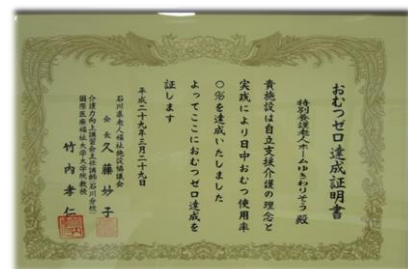 おむつゼロ達成証明書
特別養護老人ホームゆきわりそう 殿
貴施設は自立支援介護の理念と
実践により日中おむつ使用率
〇%を達成いたしました
よってここにおむつゼロ達成を
証します
平成二十九年三月二十九日
石川県老人福祉施設協議会
会長 久藤妙子
介護力向上講習会主任講師(石川分校)
国際医療福祉大学大学院教授
竹内孝仁